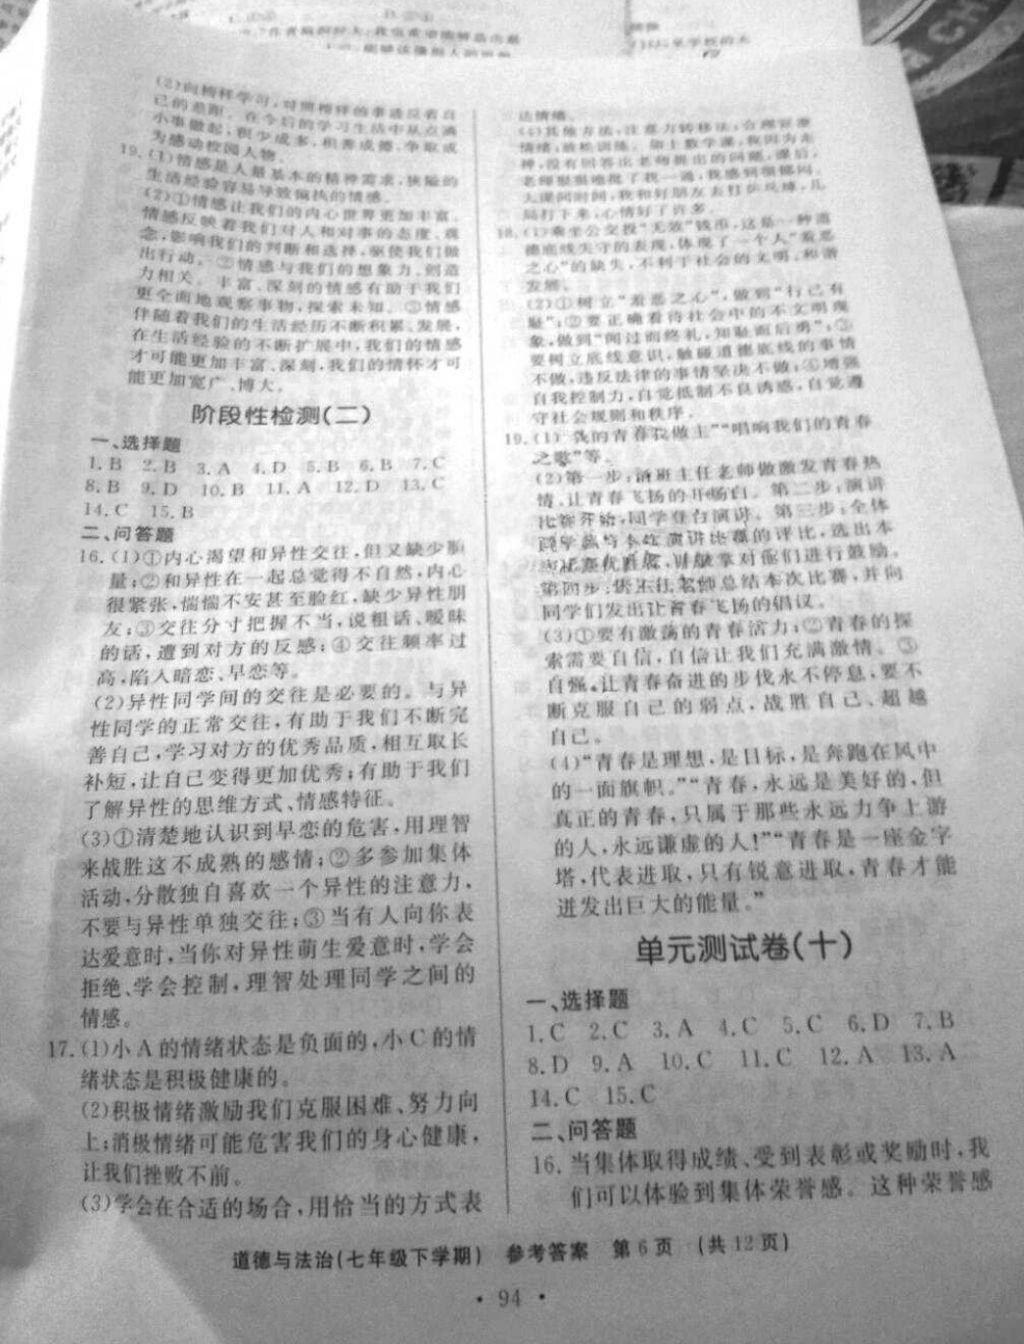 (2)向榜样学习,对照榜样的事迹反省自
己的差距。在今后的学习生活中从点滴
小事做起,积少成多,积善成德,争取成
为感动校园人物。
19.(1)情感是人最基本的精神需求,狭隘的
生活经验容易导致偏执的情感。
(2)①情感让我们的内心世界更加丰富。
情感反映着我们对人和对事的态度、观
念,影响我们的判断和选择,驱使我们做
出行动。②情感与我们的想象力、创造
力相关。丰富、深刻的情感有助于我们
更全面地观察事物,探索未知。③情感
伴随着我们的生活经历不断积累、发展,
在生活经验的不断扩展中,我们的情感
才可能更加丰富、深刻,我们的情怀才可
能更加宽广、博大。
阶段性检测(二)
一、选择题
1.B 2.B 3.A 4.D 5.B 6.B 7.C
8.B 9.D 10.B 11.A 12.D 13.C
14.C 15.B
二、问答题
16.(1)①内心渴望和异性交往,但又缺少胆
量;②和异性在一起总觉得不自然,内心
很紧张,惴惴不安甚至脸红,缺少异性朋
友;③交往分寸把握不当,说粗话、暧昧
的话,遭到对方的反感;④交往频率过
高,陷入暗恋、早恋等。
(2)异性同学间的交往是必要的。与异
性同学的正常交往,有助于我们不断完
善自己,学习对方的优秀品质,相互取长
补短,让自己变得更加优秀;有助于我们
了解异性的思维方式、情感特征。
(3)①清楚地认识到早恋的危害,用理智
来战胜这不成熟的感情;②多参加集体
活动,分散独自喜欢一个异性的注意力,
不要与异性单独交往;③当有人向你表
达爱意时,当你对异性萌生爱意时,学会
拒绝、学会控制,理智处理同学之间的
情感。
17.(1)小A的情绪状态是负面的,小C的情
绪状态是积极健康的。
(2)积极情绪激励我们克服困难、努力向
上;消极情绪可能危害我们的身心健康,
让我们挫败不前。
(3)学会在合适的场合,用恰当的方式表
达情绪。
(4)其他方法:注意力转移法,合理宣泄
情绪,放松训练。如上数学课,我因为走
神,没有回答出老师提出的问题,课后,
老师狠狠地批了我一通,我感到很郁闷。
大课间时间,我和好朋友去打乒乓球,几
局打下来,心情好了许多。
18.(1)乘坐公交投“无效”钱币,这是一种道
德底线失守的表现,体现了一个人“羞恶
之心”的缺失,不利于社会的文明、和谐
发展。
(2)①树立“羞恶之心”,做到“行己有
耻”;②要正确看待社会中的不文明现
象,做到“闻过而终礼,知耻而后勇”;③
要树立底线意识,触碰道德底线的事情
不做,违反法律的事情坚决不做;④增强
自我控制力,自觉抵制不良诱惑,自觉遵
守社会规则和秩序。
19.(1)“我的青春我做主”“唱响我们的青春
之歌”等。
(2)第一步:请班主任老师做激发青春热
情,让青春飞扬的开场白。第二步:演讲
比赛开始,同学登台演讲。第三步:全体
同学参与本次演讲比赛的评比,选出本
鼓掌对他们进行鼓励。
第四步:班主任老师总结本次比赛,并向
同学们发出让青春飞扬的倡议。
(3)①要有激荡的青春活力;②青春的探
索需要自信,自信让我们充满激情。③
自强,让青春奋进的步伐永不停息,要不
断克服自己的弱点,战胜自己、超越
自己。
(4)“青春是理想,是目标,是奔跑在风中
的一面旗帜。”“青春,永远是美好的,但
真正的青春,只属于那些永远力争上游
的人,永远谦虚的人!”“青春是一座金字
塔,代表进取,只有锐意进取,青春才能
迸发出巨大的能量。”
单元测试卷(十)
一、选择题
1.C 2.C 3.A 4.C 5.C 6.D 7.B
8.D 9.A 10.C 11.C 12.A 13.A
14.C 15.C
二、问答题
16.当集体取得成绩、受到表彰或奖励时,我
们可以体验到集体荣誉感。这种荣誉感
道德与法治(七年级下学期) 参考答案 第6页 (共12页)
·94·